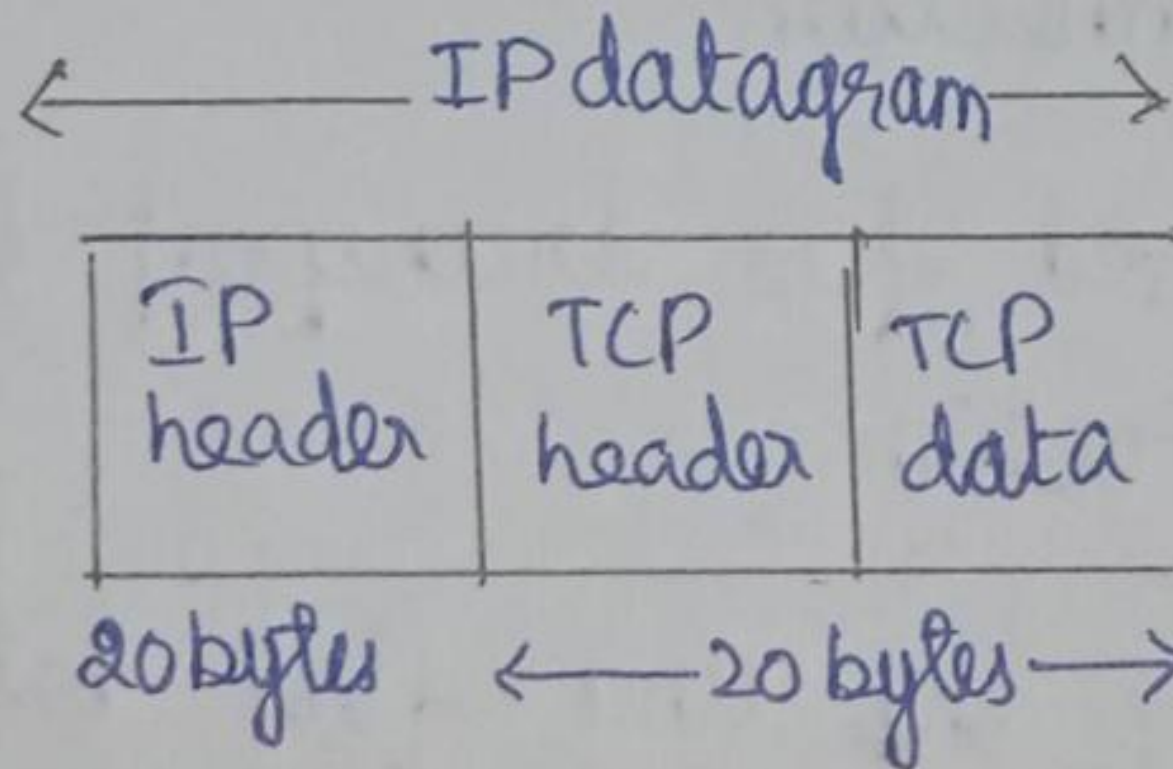 IP datagram
IP header
TCP header
TCP data
20 bytes
20 bytes